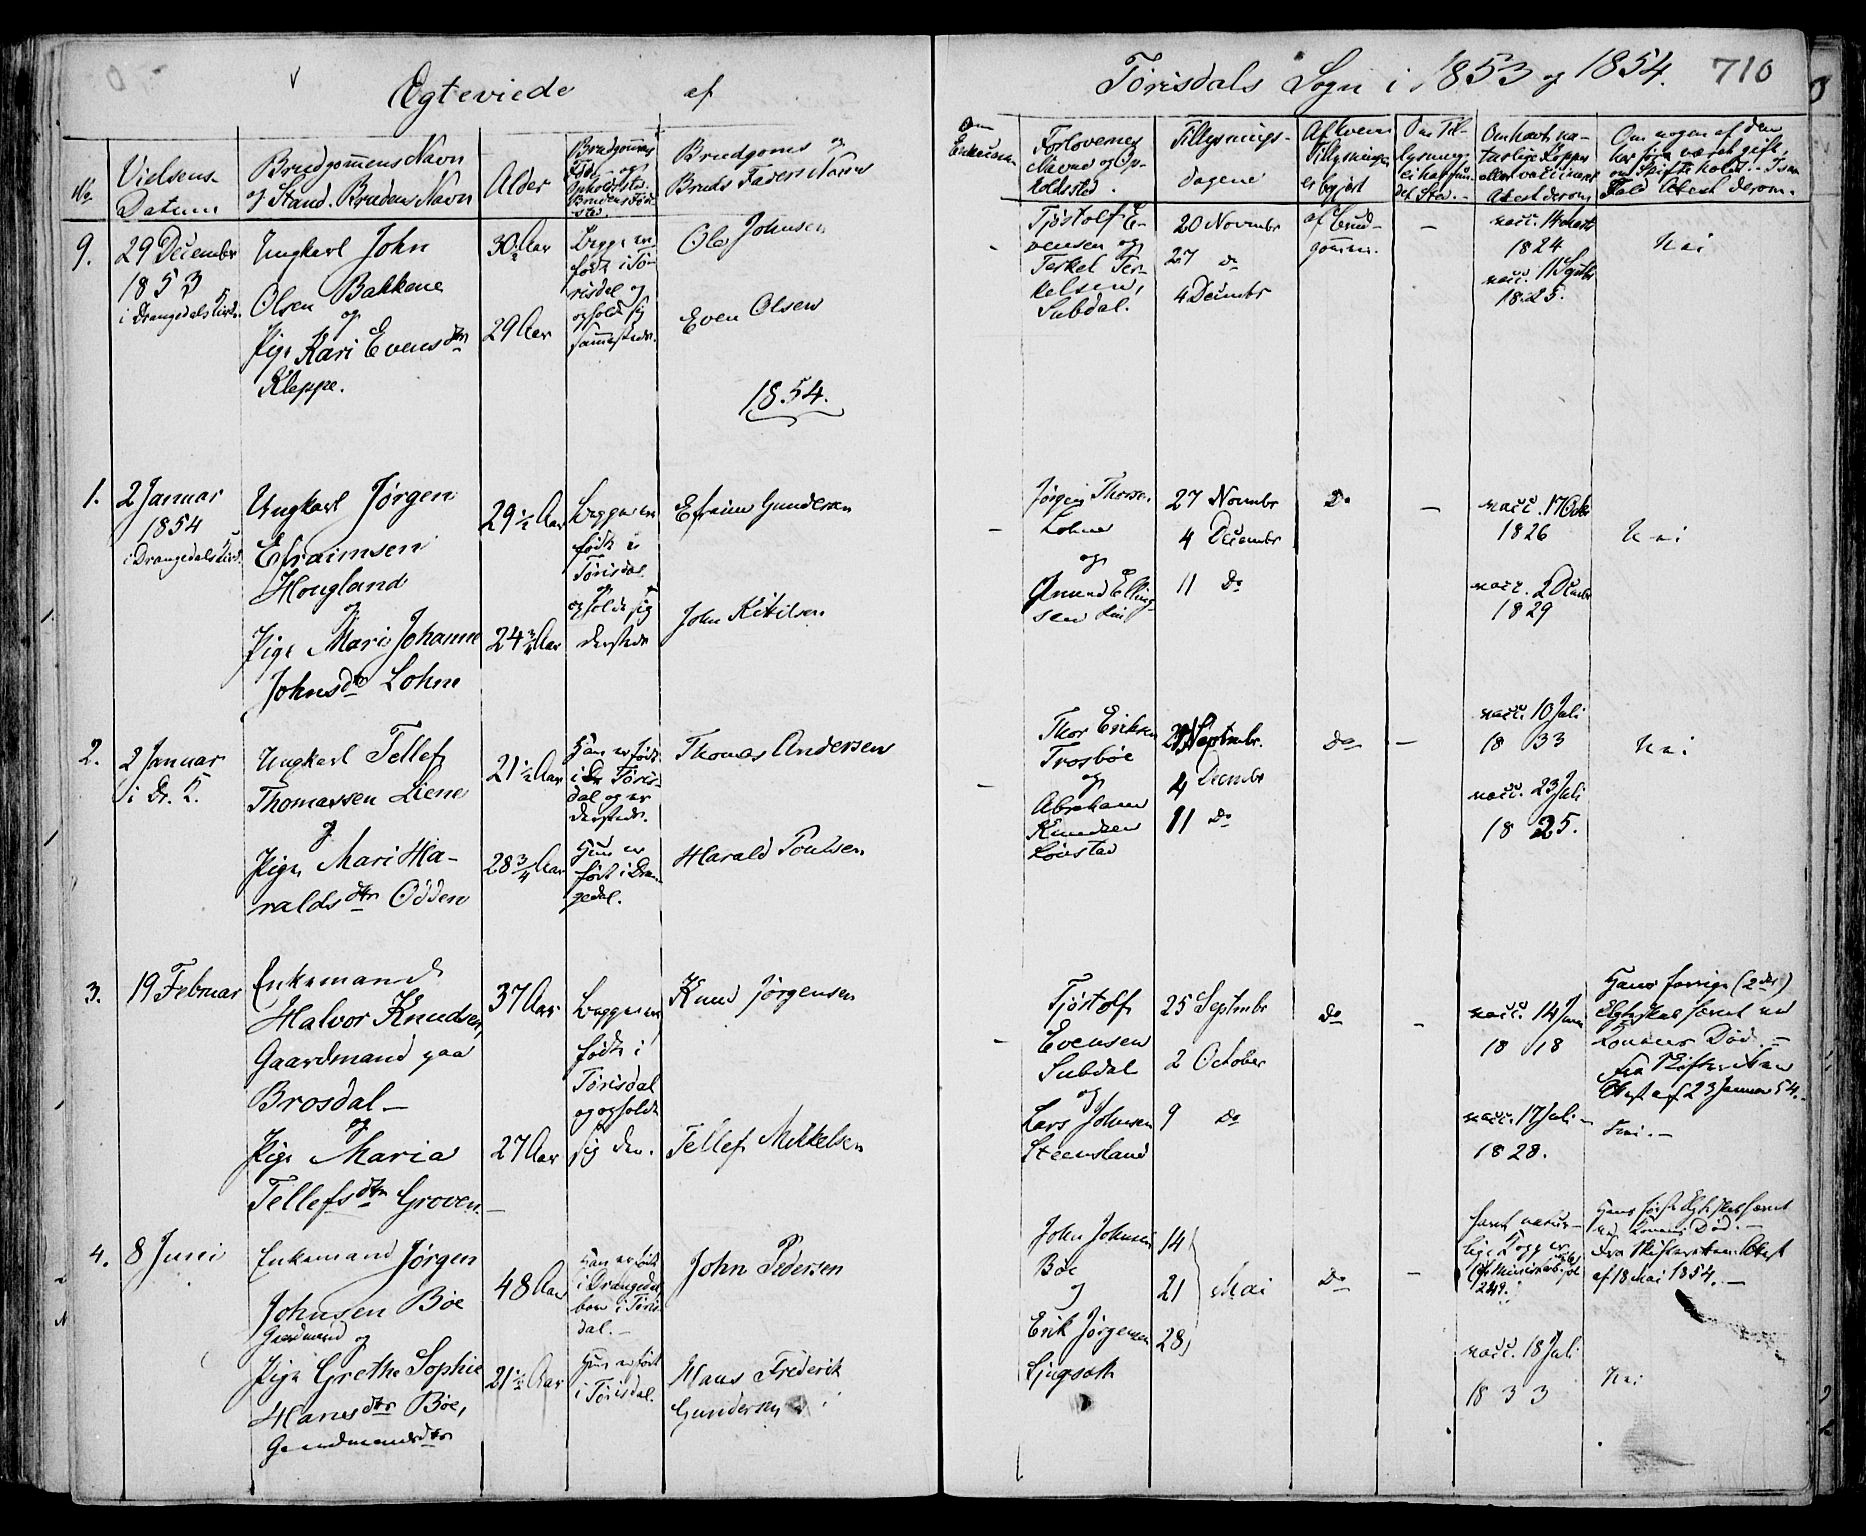 Egteviede af Tørisdals Sogn i 1853 og 1854. 710
No
Vielsens-
Datum
Brudgommens Navn
og Stand. Brudens Navn
Alder
Brudgommens
Føde- og
Opholdssted.
Brudens Føde-
sted.
Brudgoms og
Bruds Faders Navn
Forlovernes
Navne og Op-
holdssted.
Tillysnings-
dagene
Af hvem
Tillysningen
er begjært
Om Til-
lysning
ei har fun-
det Sted.
Om havt na-
turlige Kopper
eller vaccineret
Attest derom
Om nogen af dem
har før været gift,
om Skifte holdt. I saa
Fald Attest derom.
9.
29 Decembr
1853
i Drangedals Kirke
Ungkarl John
Olsen Bakkene
og
Pige Kari Evensdtr
Kleppe.
30 Aar
29 Aar
Begge ere
født i Tø-
risdal og
opholde sig
sammesteds.
Ole Johnsen
Even Olsen
Tjøstolf E-
vensen og
Terkel Ter-
kelsen,
Subdal.
20 Novembr
27 do
4 Decembr
af Brud-
gommen.
–
vacc. 14 Marts
1824
vacc. 11 Septbr
1825.
Nei
1854.
1.
2 Januar
1854
i Drangedals Kirke
Ungkarl Jørgen
Efraimsen
Hougland
og
Pige Mari Johanne
Johnsdtr Lohne
29 1/2 Aar
24 3/4 Aar
Begge ere
født i
Tørisdal
og
opholde sig
dersteds
Efraim Gundersen
John Kittilsen
Jørgen Thorsen
Lohne
og
Gunund Elling-
sen
27 Novembr
4 Decembr
11 Do
Do
–
vacc. 17 Octbr
1826
vacc. 2 Decmbr
1829
Nei
2.
2 Januar
i Dr. K.
Ungkarl Tellef
Thomassen Liene
og
Pige Mari Ha-
raldsdtr Odden
21 1/2 Aar
28 3/4 Aar
Han er født
i Tøris-
dal og er
dersteds.
Hun er
født i Dran-
gedal.
Thomas Andersen
Harald Poulsen
Thor Eriksen
Trosbøe
og
Abraham
Knudsen
Lønstad
4 Decembr
11 Do
Do
–
vacc. 10 Juli
1833
vacc. 23 Juli
1825.
Nei
3.
19 Februar
Enkemand
Halvor Knudsen,
Gaardmand paa
Brosdal –
og
Pige Maria
Tellefsdtr Groven. –
37 Aar
27 Aar
Begge ere
født i
Tørisdal
og opholde
sig der.
Knud Jørgensen
Tellef Mikkelsen
Tjøstolf
Evensen
Subdal
og
Lars Johnsen
Steensland
25 Septmbr
2 October
9 Do
Do
–
vacc. 14 Juni
1818
vacc. 17 Juli –
1828.
Hans forrige (2det)
Egteskab hævet ved
Konens Død. –
Fra Skifteretten
Attest af 23 Januar 54. –
Nei. –
4.
8 Juni
Enkemand Jørgen
Johnsen Bøe
Gaardmand og
Pige Grethe Sophie
Hansdtr Bøe,
Gaardmandsdtr
48 Aar
21 1/2 Aar
Han er født
i Drangedal,
boer i Tøris-
dal. –
Hun er født
i Tørisdal.
John Pedersen
Hans Frederik
Gundersen
John Johnsen
Bøe
og
Erik Jørgensen
14
21 Mai
28
Do
–
havt natur-
lige Kopper
vacc. 18 Juli
1833
Hans første Egteskab hævet
ved Konens Død. –
Fra Skifteretten Attest
af 18 Mai 1854. –
Nei